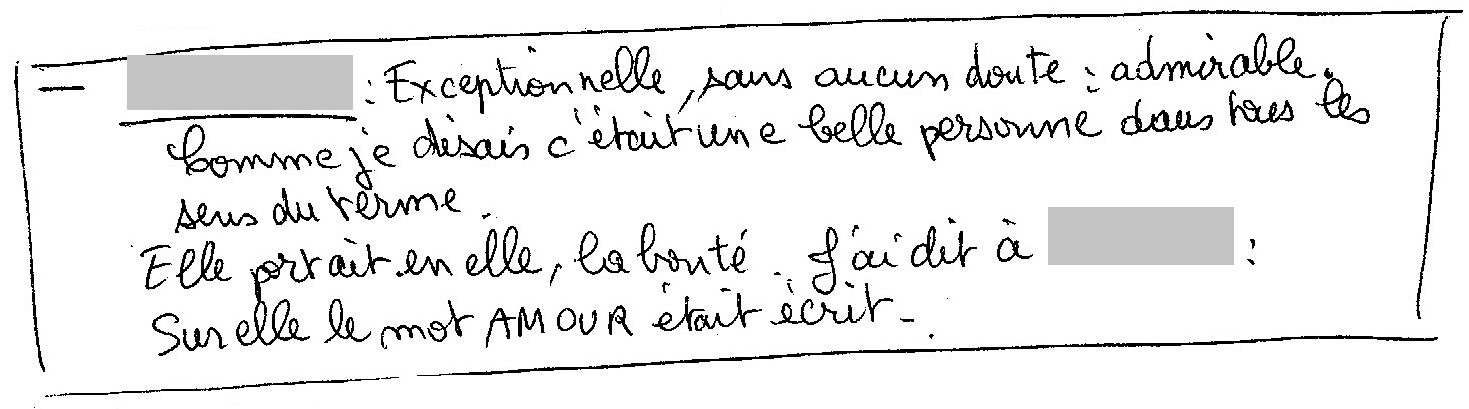 — : Exceptionnelle, sans aucun doute : admirable.
Comme je disais c'était une belle personne dans tous les
sens du terme.
Elle portait en elle, la bonté. J'ai dit à :
Sur elle le mot AMOUR était écrit.